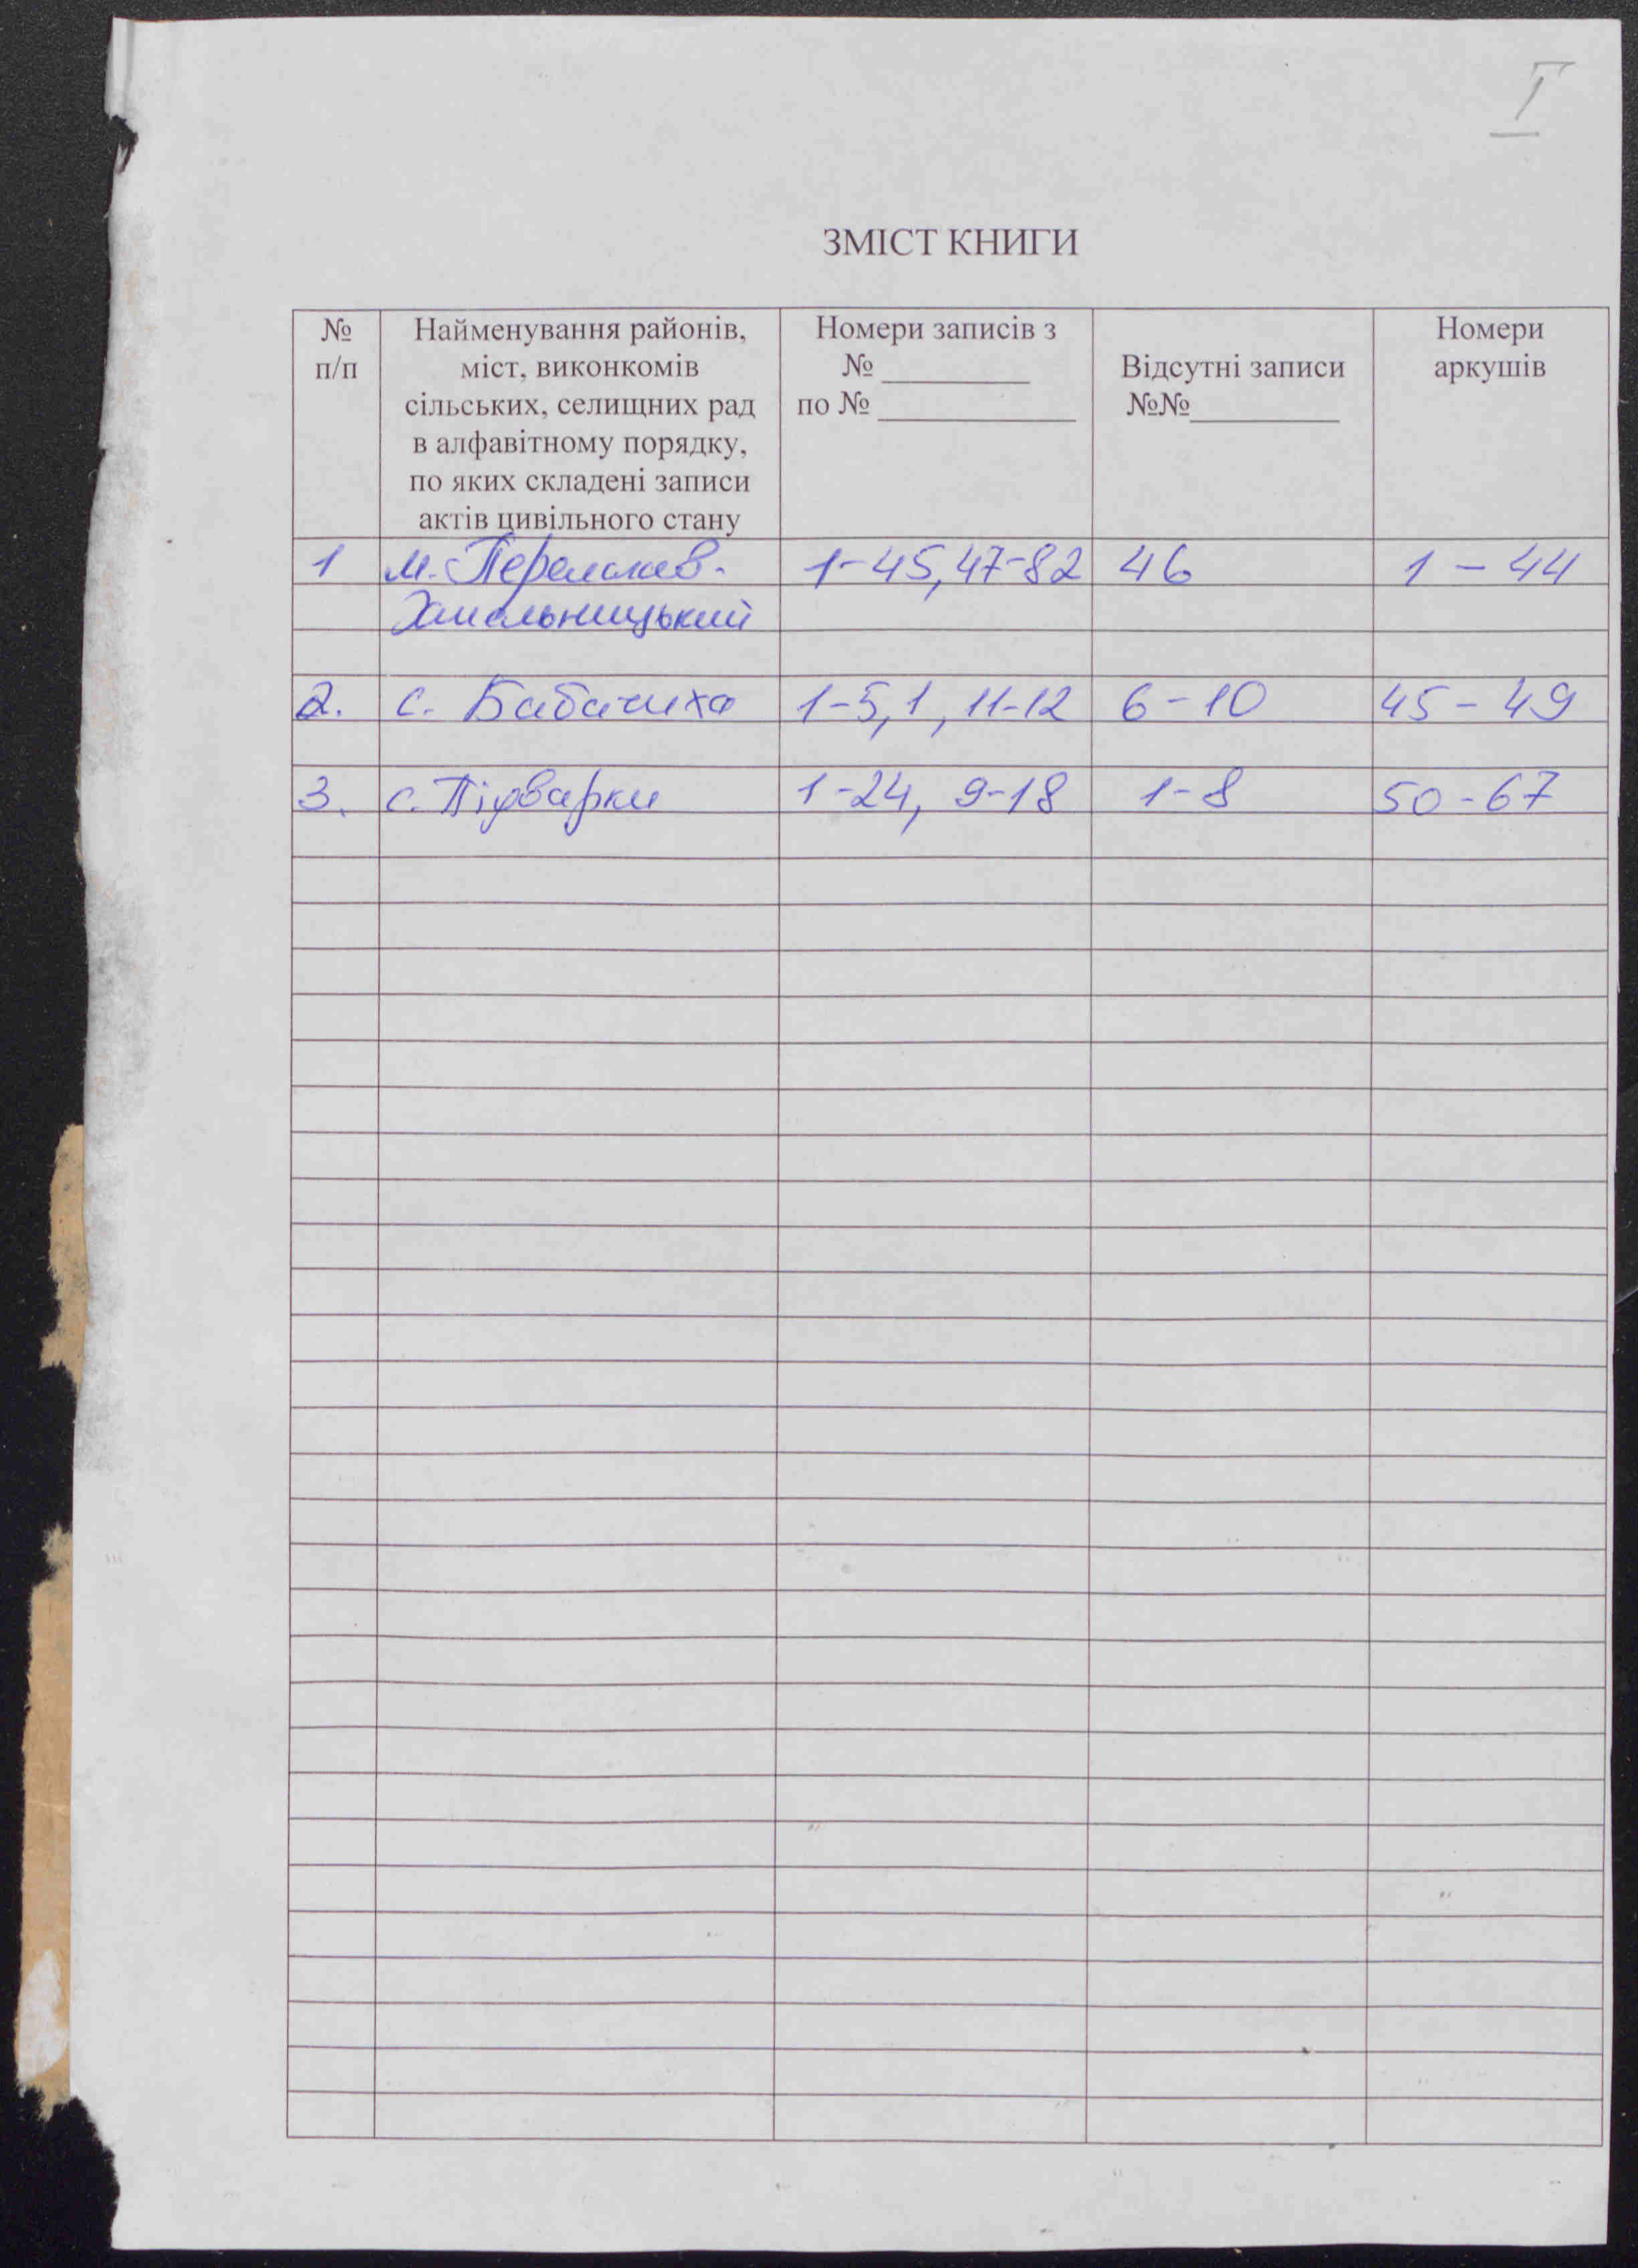 I
ЗМІСТ КНИГИ
№ п/п
Найменування районів,
міст, виконкомів
сільських, селищних рад
в алфавітному порядку,
по яких складені записи
актів цивільного стану
Номери записів з
№ __________
по № _____________
Відсутні записи
№№__________
Номери
аркушів
1 м. Переяслав- 1-45, 47-82 46 1 - 44
Хмельницький
2. с. Бабачиха 1-5, 1, 11-12 6-10 45-49
3. с. Підварки 1-24, 9-18 1-8 50-67